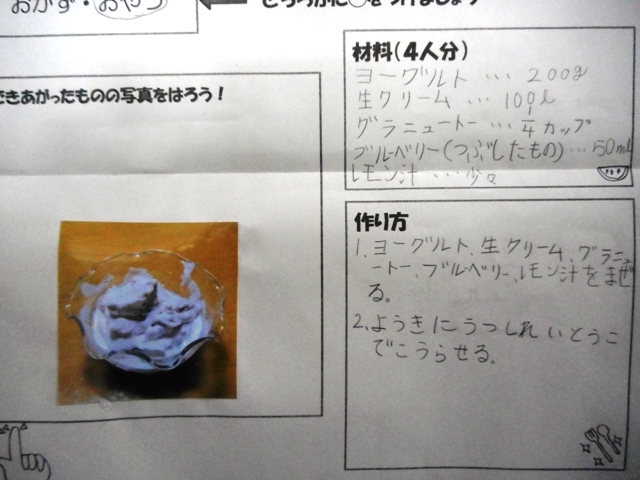 おかず・おやつ
どちらかに○をつけましょう
できあがったものの写真をはろう！
材料（4人分）
ヨーグルト … 200g
生クリーム … 100l
グラニュートー … 1/4カップ
ブルーベリー(つぶしたもの)…50ml
レモン汁 … 少々
作り方
1、ヨーグルト、生クリーム、グラニュ
ートー、ブルベリー、レモン汁をまぜ
る。
2、ようきにうつしれいとうこ
でこうらせる。